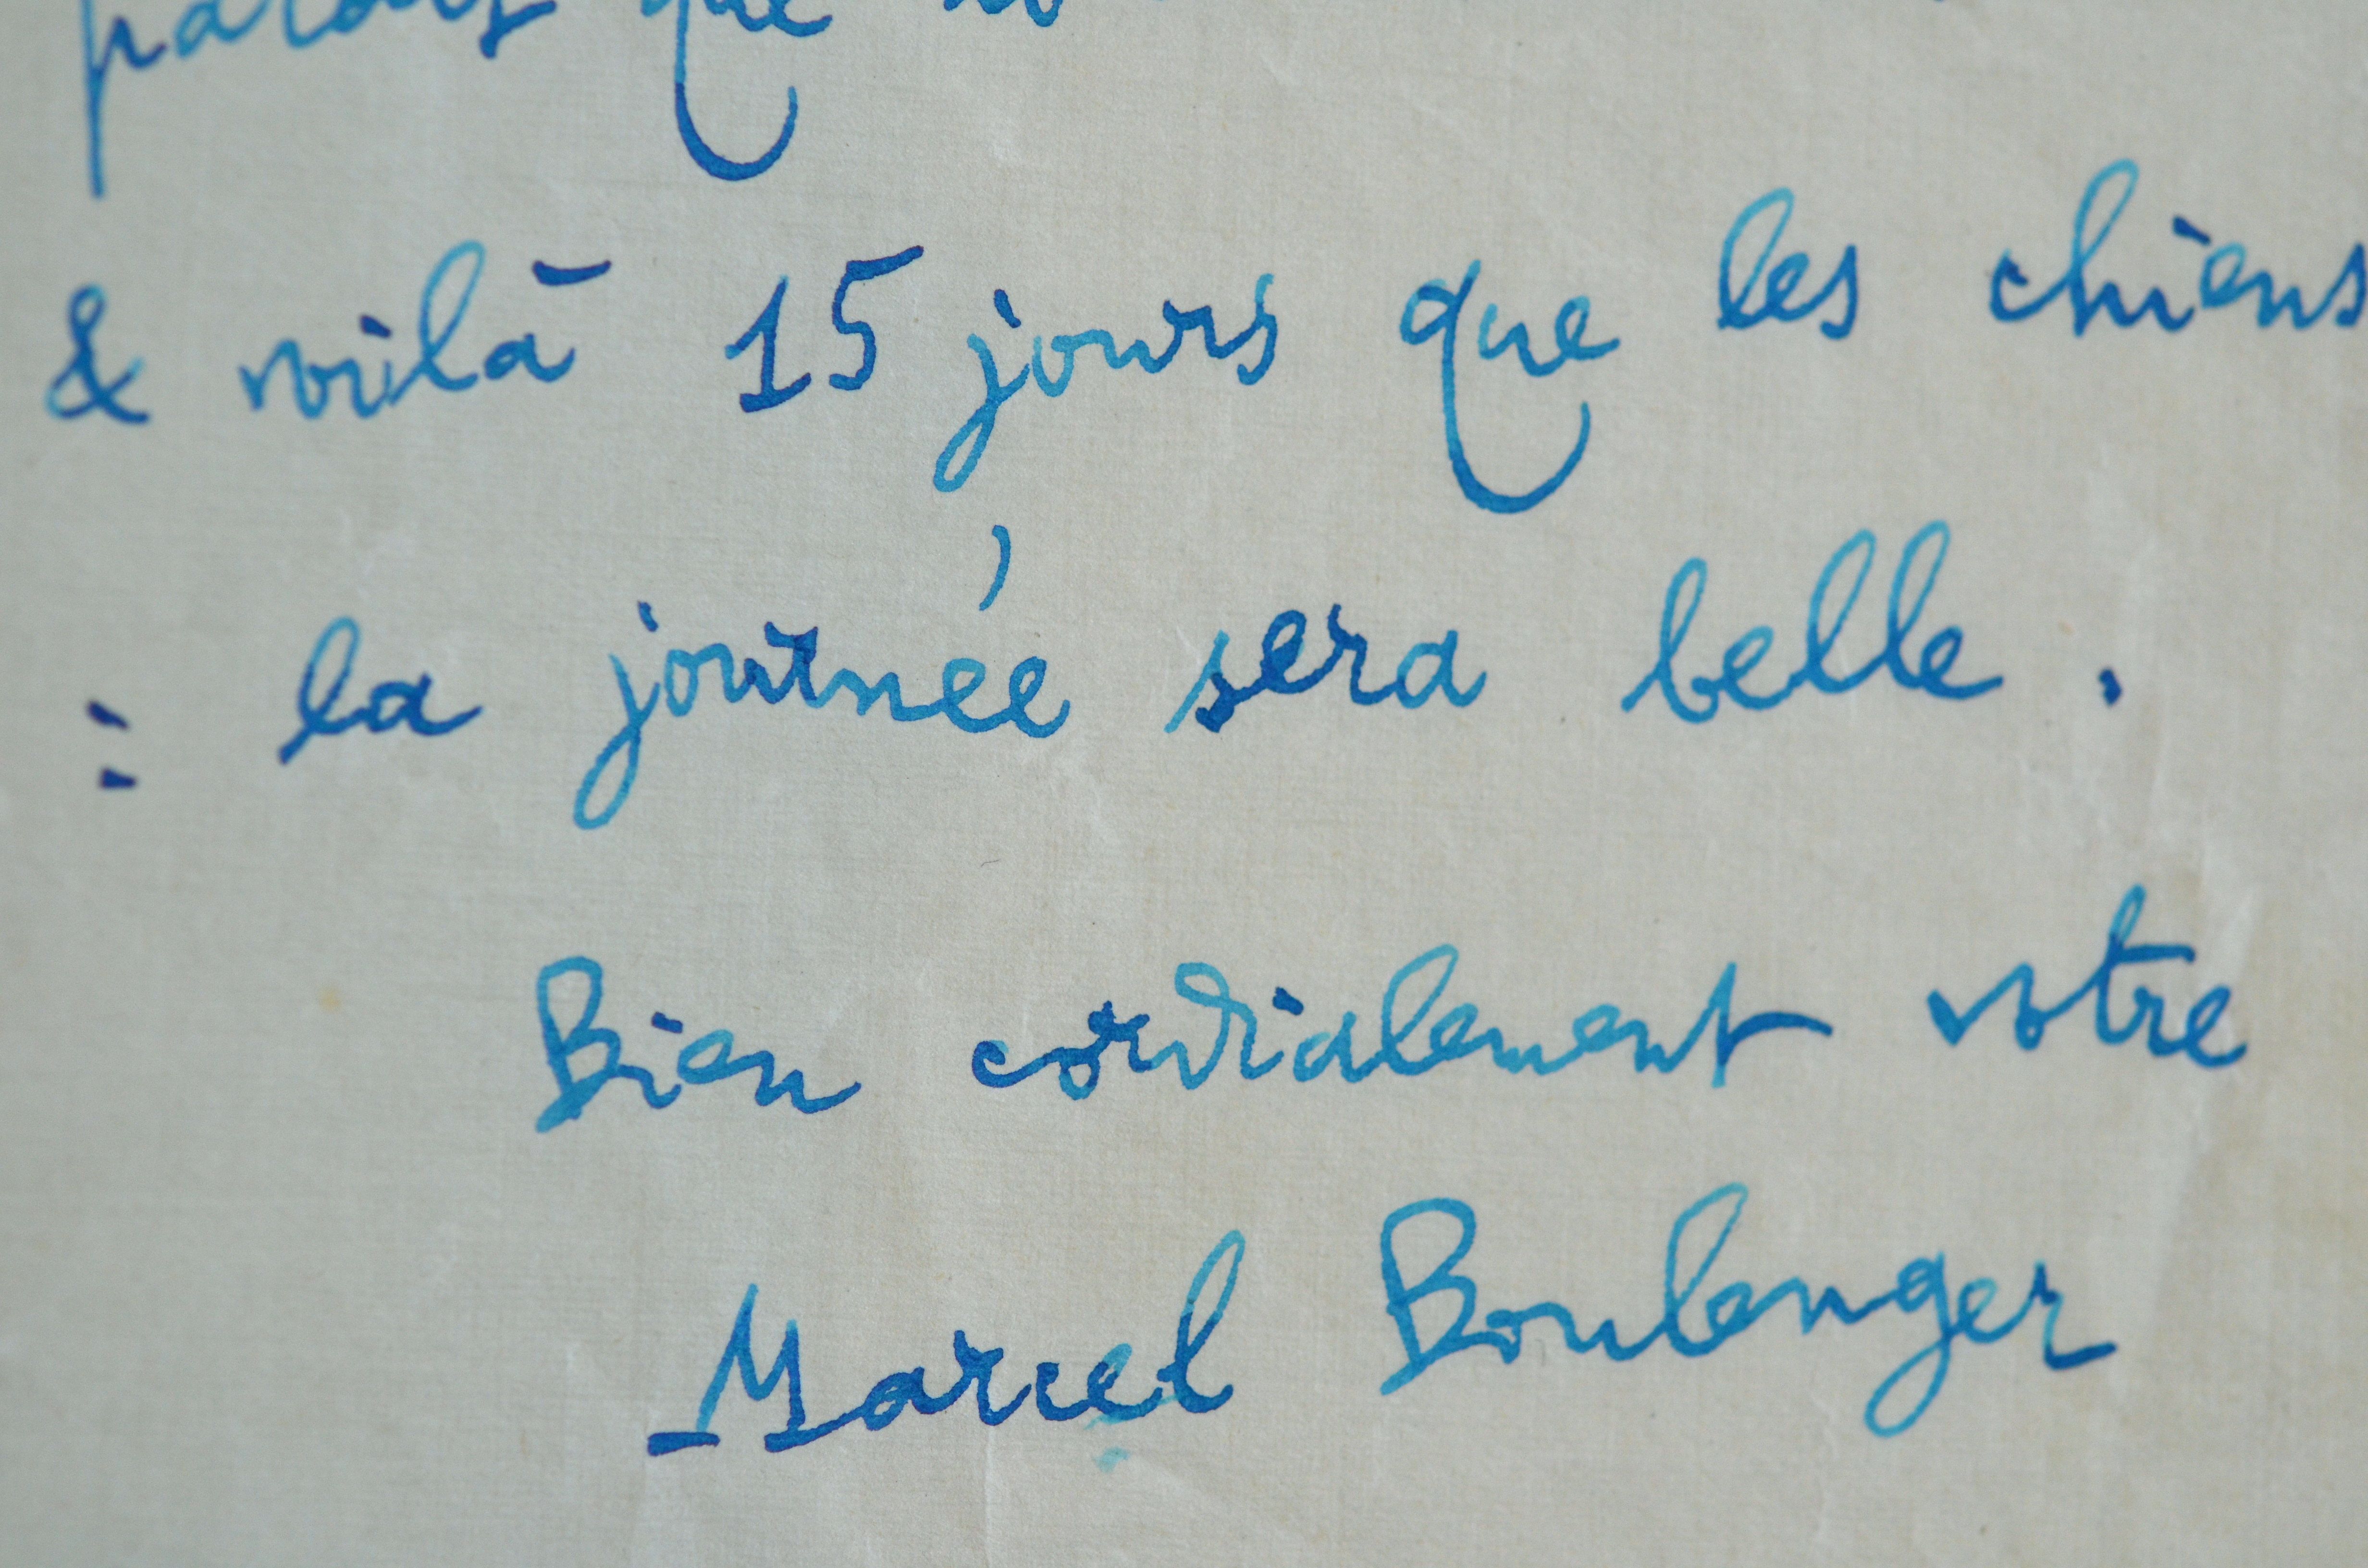 que
& voilà 15 jours que les chiens
: la journée sera belle.
Bien cordialement votre
Marcel Boulenger